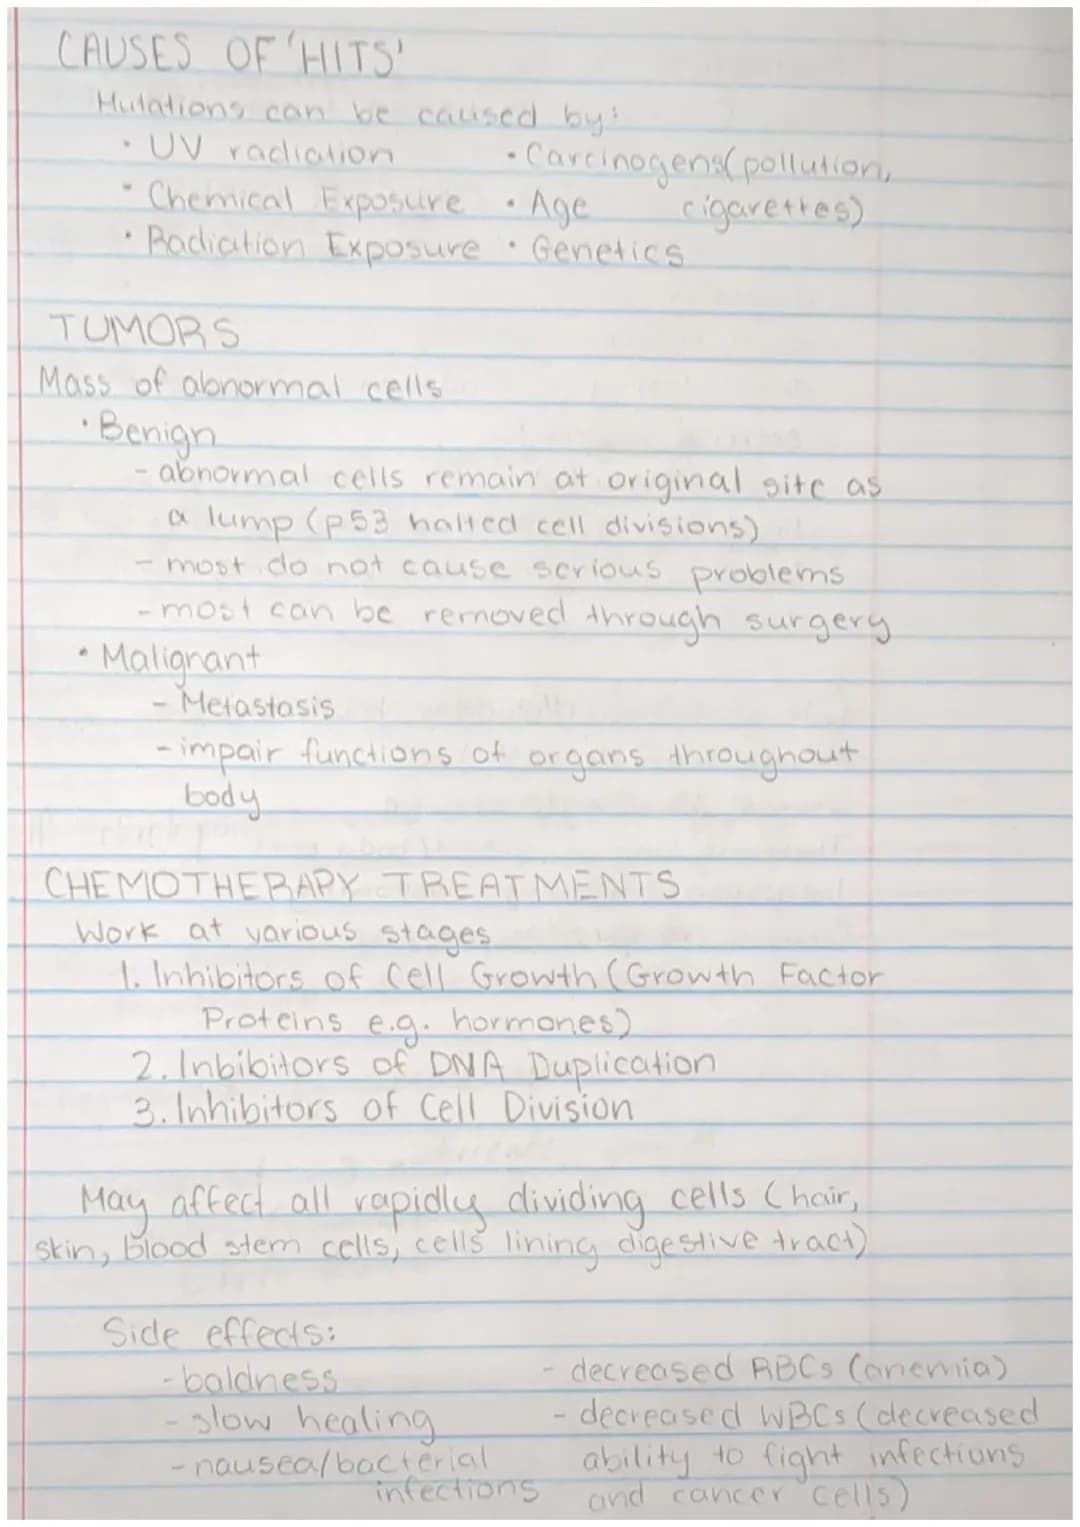 CAUSES OF 'HITS'
Mutations can be caused by:
• UV radiation • Carcinogens (pollution,
• Chemical Exposure • Age cigarettes)
• Radiation Exposure • Genetics
TUMORS
Mass of abnormal cells
• Benign
- abnormal cells remain at original site as
a lump (p53 halted cell divisions)
- most do not cause serious problems
- most can be removed through surgery
• Malignant
- Metastasis
- impair functions of organs throughout
body
CHEMOTHERAPY TREATMENTS
Work at various stages
1. Inhibitors of Cell Growth (Growth Factor
Proteins e.g. hormones)
2. Inbibitors of DNA Duplication
3. Inhibitors of Cell Division
May affect all rapidly dividing cells (hair,
skin, blood stem cells, cells lining digestive tract)
Side effects:
- baldness - decreased RBCs (anemia)
- slow healing - decreased WBCs (decreased
- nausea/bacterial ability to fight infections
infections and cancer cells)